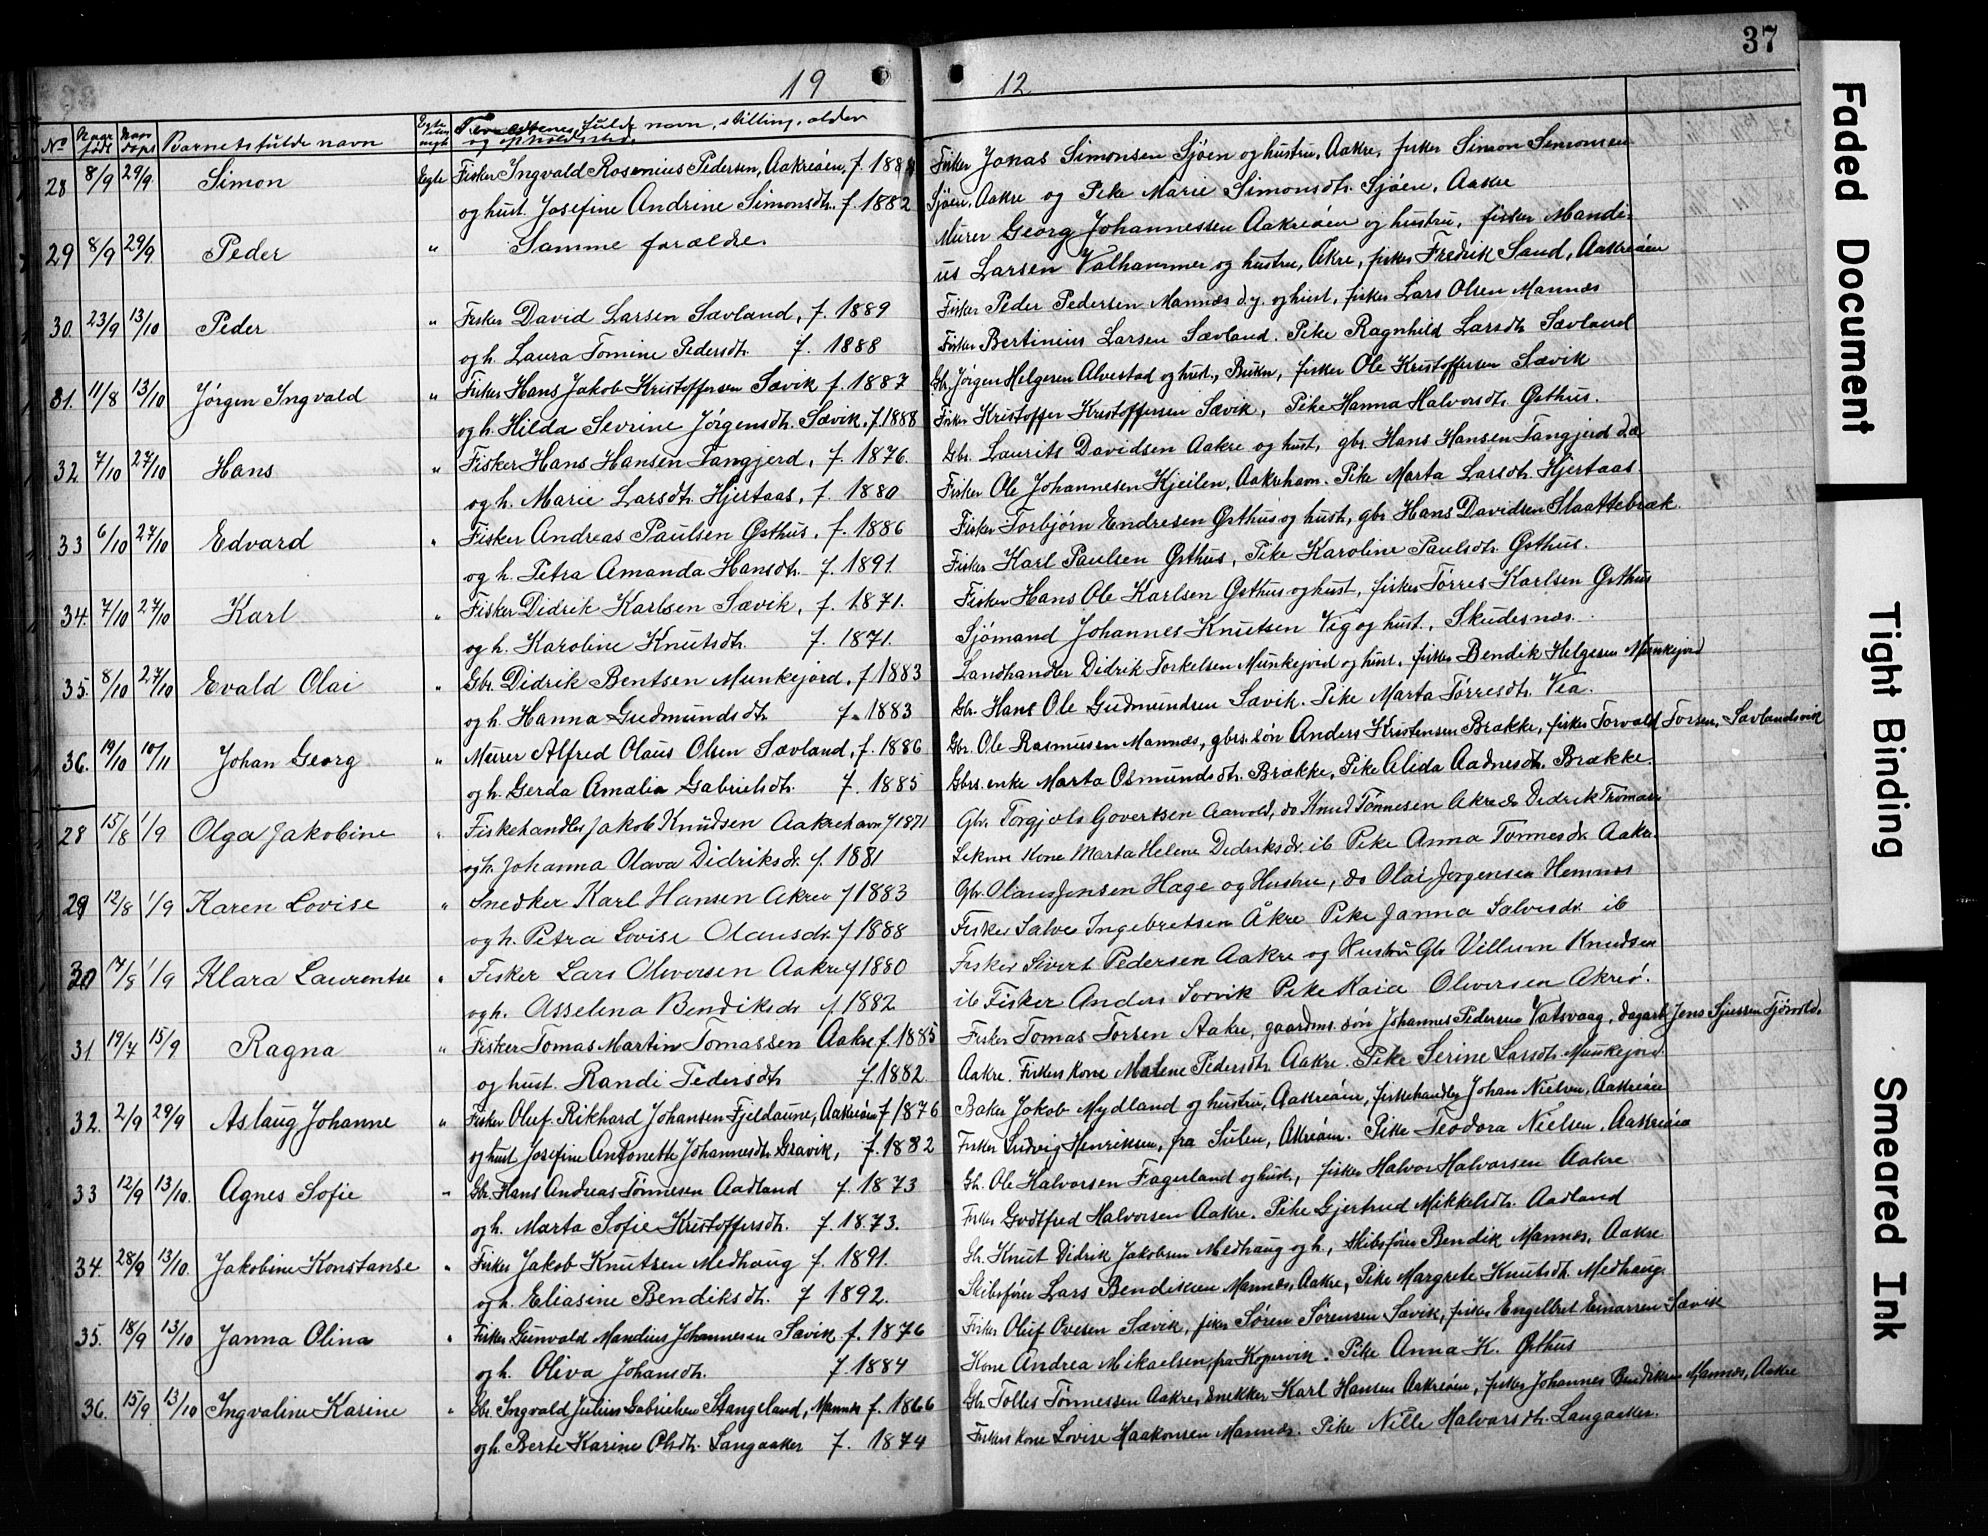 37
19 12
No Naar født Naar døpt Barnets fulde navn Egte eller uegte Forældrenes fulde navn, stilling, alder
og opholdssted.
28 8/9 29/9 Simon Egte Fisker Ingvald Rosenius Pedersen, Aakreøien, f. 1881 Fisker Jonas Simonsen Sjøen og hustru, Aakre, fisker Simon Simonsen
og hust. Josefine Andrine Simonsdtr. f. 1882 Sjøen, Aakre og Pike Marie Simonsdtr. Sjøen, Aakre
29 8/9 29/9 Peder " Samme forældre. Murer Georg Johannessen Aakreøien og hustru, fisker Mandi-
us Larsen Valhammer og hustru, Åkre, fisker Fredrik Sand, Aakreøien
30. 23/9 13/10 Peder " Fisker David Larsen Sævland, f. 1889 Fisker Peder Pedersen Mannæs d.y. og hust, fisker Lars Olsen Mannæs
og h. Laura Tomine Pedersdtr. f. 1888 Fisker Bertinius Larsen Sævland. Pike Ragnhild Larsdtr. Sævland
31. 11/8 13/10 Jørgen Ingvald " Fisker Hans Jakob Kristoffersen Sævik f. 1887 Gbr. Jørgen Helgesen Alvestad og hust., Bukn, fisker Ole Kristoffersen Sævik
og h. Hilda Sevrine Jørgensdtr. Sævik, f. 1888 Fisker Kristoffer Kristoffersen Sævik, Pike Hanna Halvorsdtr. Østhus.
32 7/10 27/10 Hans " Fisker Hans Hansen Tangjerd, f. 1876. Gbr. Laurits Davidsen Aakre og hust, gbr. Hans Hansen Tangjerd d.æ
og h. Marie Larsdtr. Hjertaas, f. 1880 Fisker Ole Johannesen Kjeilen, Aakrehavn. Pike Marta Larsdtr. Hjertaas.
33 6/10 27/10 Edvard " Fisker Andreas Paulsen Østhus, f. 1886 Fisker Torbjørn Endresen Østhus og hust, gbr Hans Davidsen Slaattebræk
og h. Petra Amanda Hansdtr. f. 1891. Fisker Karl Paulsen Østhus, Pike Karoline Paulsdtr. Østhus.
34. 7/10 27/10 Karl " Fisker Didrik Karlsen Sævik, f. 1871. Fisker Hans Ole Karlsen Østhus og hust, fisker Tørres Karlsen Østhus
og h. Karoline Knutsdtr. f. 1871. Sjømand Johannes Knutsen Vig og hust. Skudesnæs.
35. 8/10 27/10 Evald Olai " Gbr. Didrik Bentsen Munkejord, f 1883 Landhandler Didrik Torkelsen Munkejord og hust, fisker Bendik Helgesen Munkejord
og h. Hanna Gudmundsdtr. f. 1883 Gbr. Hans Ole Gudmundsen Sævik. Pike Marta Tørresdtr. Vea.
36. 19/10 10/11 Johan Georg " Murer Alfred Olaus Olsen Sævland, f. 1886 Gbr. Ole Rasmussen Mannæs, gbrs. søn Anders Kristensen Brække, fisker Torvald Torsen, Sævlandsvik
og h. Gerda Amalia Gabrielsdtr. f. 1885 Gbrs. enke Marta Osmundsdtr. Brække, Pike Alida Aadnesdtr. Brække.
28 15/8 1/9 Olga Jakobine " Fiskehandler Jakob Knudsen Aakrehavn f 1871 Gbr. Torgjols Govertsen Aarvold, do Knud Tønnesen Akre do Didrik
og h. Johanna Olava Didriksdr f. 1881 Kone Marta Helene Didriksdr. ib Pike Anna Tønnesdr. Aakre.
29 12/8 1/9 Karen Lovise " Snedker Karl Hansen Akreø f 1883 Gbr. Olaus Jensen Hage og Hustru, do Olai Jørgensen Hemnes
og h. Petra Lovise Olausdr. f 1888 Fisker Salve Ingebretsen Åkre Pike Janna Salvesdr. ib
30 17/8 1/9 Klara Laurentse " Fisker Lars Oliversen Aakre f 1880 Fisker Sivert Pedersen Aakre og Hustru Gbr Villum Knudsen
og h. Asselena Bendiksdr f. 1882 ib Fisker Anders Sørvik Pike Kaia Oliversen Akreø.
31 19/7 15/9 Ragna " Fisker Tomas Martin Tomassen Aakre f. 1885 Fisker Tomas Torsen Aakre, gaardms. søn Johannes Pedersen Vatsvaag, dagarb. Jens Sjursen Tjøsvold,
og hust. Randi Pedersdtr f. 1882. Aakre. Fiskers kone Malene Pedersdtr. Aakre. Pike Serine Larsdtr. Munkejord.
32. 2/9 29/9 Aslaug Johanne " Fisker Oluf Rikhard Johansen Fjeldaune, Aakreøien f 1876 Baker Jakob Mydland og hustru, Aakreøien, fiskehandler Johan Nielsen, Aakreøien
og hust Josefine Antonette Johannesdtr. Gravik, f. 1882 Fisker Ludvig Henriksen, fra Sulen, Akreøien. Pike Teodora Nielsen, Aakreøien
33 12/9 13/10. Agnes Sofie " Gbr. Hans Andreas Tønnesen Aadland f. 1873 Gbr. Ole Halvorsen Fagerland og hust., fisker Halvor Halvorsen Aakre
og h. Marta Sofie Kristoffersdtr. f. 1873. Fisker Godtfred Halvorsen Aakre. Pike Gjertrud Mikkelsdtr. Aadland
34. 28/9 13/10. Jakobine Konstanse " Fisker Jakob Knutsen Medhaug f. 1891. Gbr. Knut Didrik Jakobsen Medhaug og h., skibsfører Bendik Mannæs, Aakre
og h. Eliasine Bendiksdtr. f 1892. Skibsfører Lars Bendiksen Mannæs, Aakre, Pike Margrete Knutsdtr. Medhaug.
35. 18/9 13/10 Janna Olina " Fisker Gunvald Mandius Johannesen Sævik f. 1876 Fisker Oluf Ovesen Sævik, fisker Søren Sørensen Sævik, fisker Engelbret Einarsen Sævik
og h. Oliva Johansdtr. f. 1884 Kone Andrea Mikaelsen, fra Kopervik. Pike Anna K. Østhus
36. 15/9 13/10 Ingvaline Karine " Gbr. Ingvald Julius Gabrielsen Stangeland, Mannæs f. 1866 Gbr. Tolles Tønnessen Aakre, snekker Karl Hansen Aakreøien, fisker Johannes Bendiksen Mannæs, Aakre
og h. Berte Karine Olsdtr. Langaaker f. 1874 Fiskers kone Lovise Haakonsen Mannæs. Pike Nille Halvorsdtr. Langaaker.
Faded Document
Tight Binding
Smeared Ink